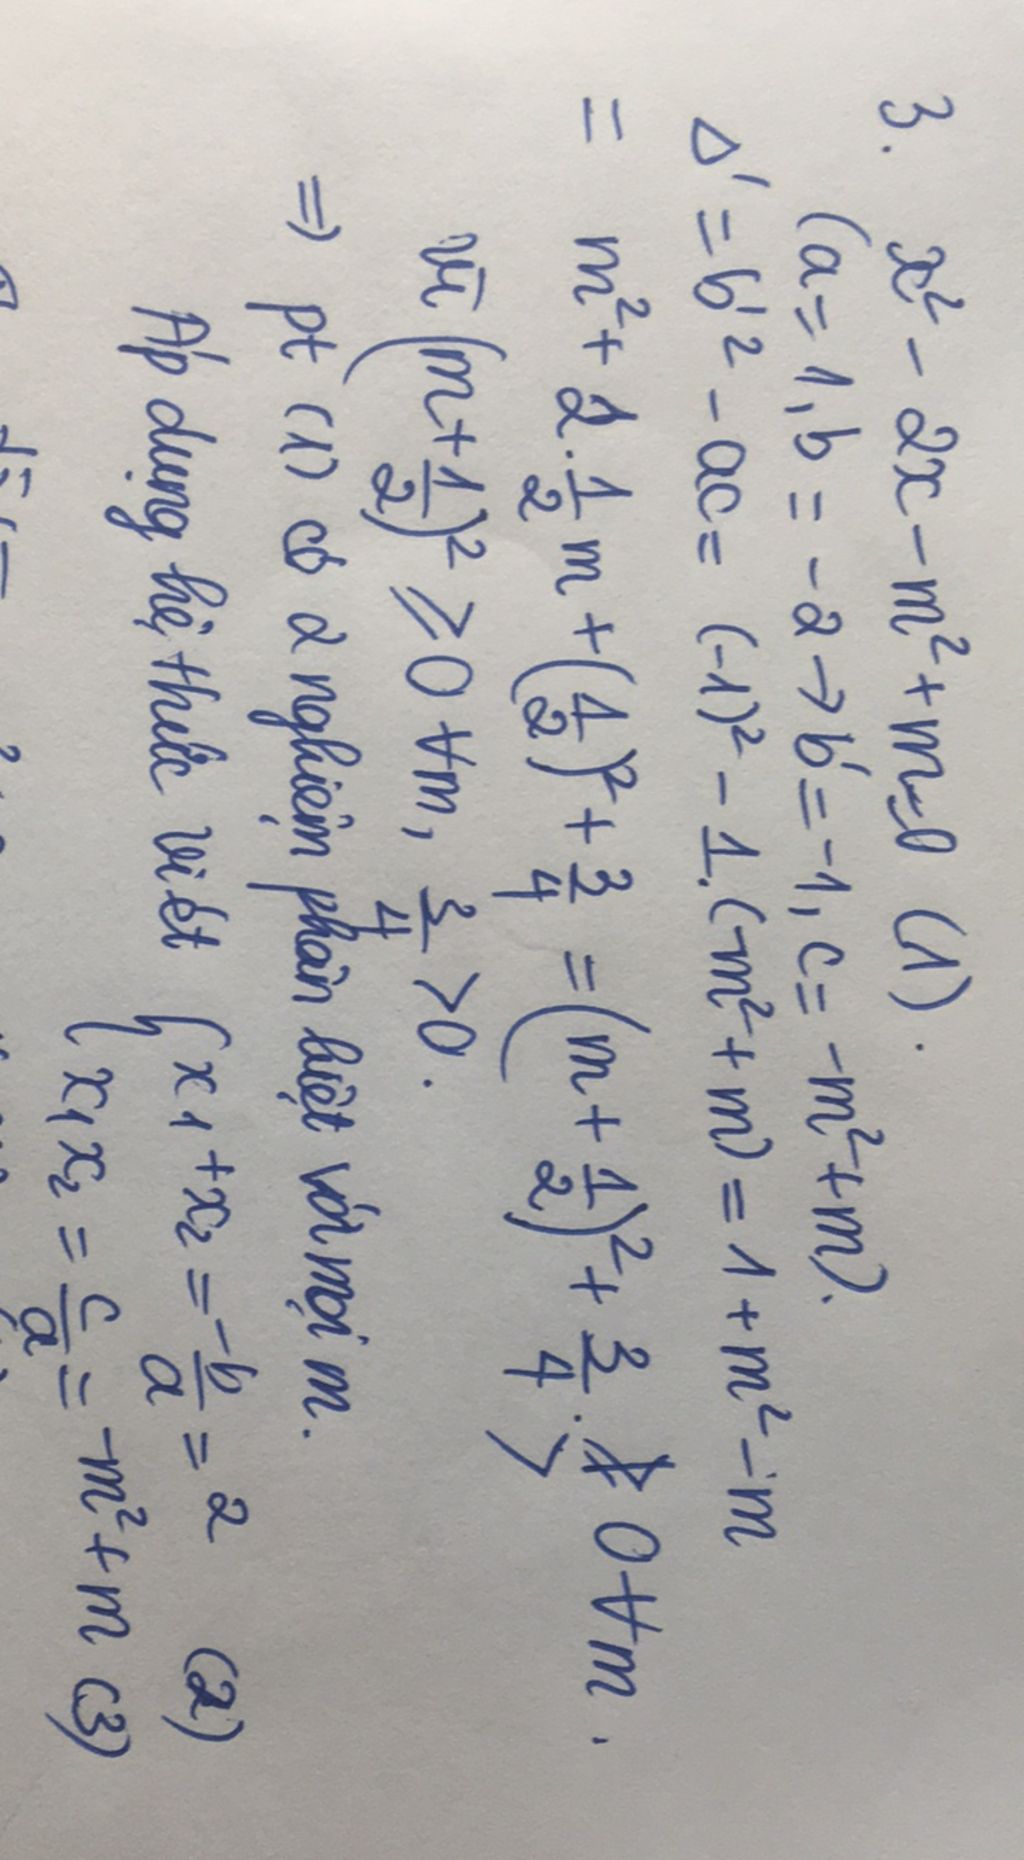 3. x² - 2x - m² + m = 0 (1).
(a = 1, b = -2 → b' = -1, c = -m² + m).
Δ' = b'² - ac = (-1)² - 1.(-m² + m) = 1 + m² - m
= m² + 2.1/2 m + (1/2)² + 3/4 = (m + 1/2)² + 3/4 > 0 ∀m.
Vì (m + 1/2)² ≥ 0 ∀m, 3/4 > 0.
⇒ pt (1) có 2 nghiệm phân biệt với mọi m.
Áp dụng hệ thức viét { x₁ + x₂ = -b/a = 2 (2)
x₁x₂ = c/a = -m² + m (3)